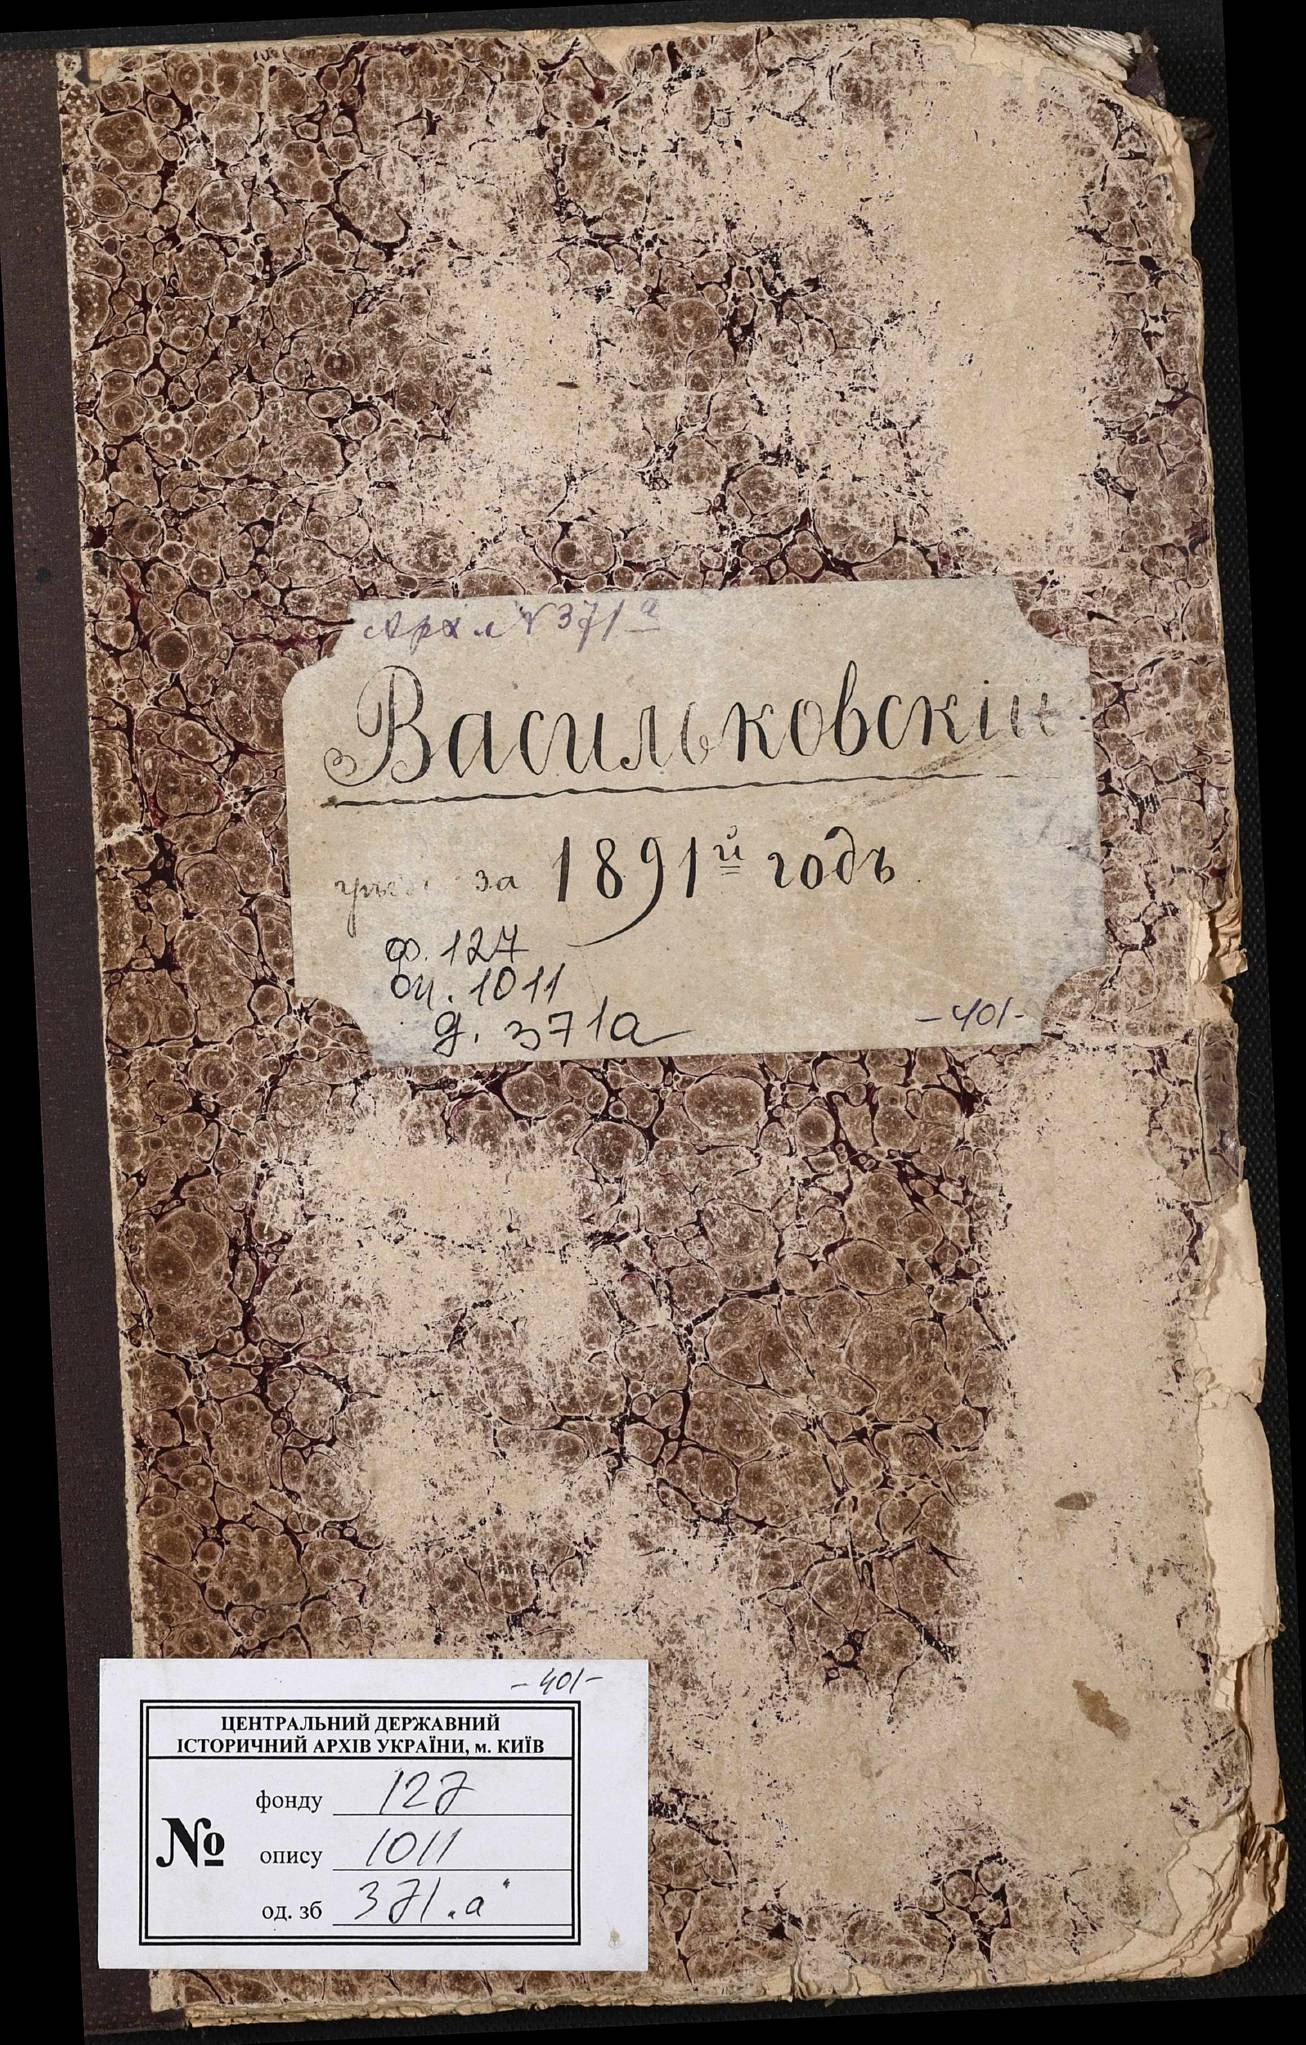 Арх. № 371 а
Васильковскій
за 1891й годъ
ф. 127
оп. 1011
д. 371а
-401-
-401-
ЦЕНТРАЛЬНИЙ ДЕРЖАВНИЙ
ІСТОРИЧНИЙ АРХІВ УКРАЇНИ, м. КИЇВ
№
фонду 127
опису 1011
од. зб 371.а